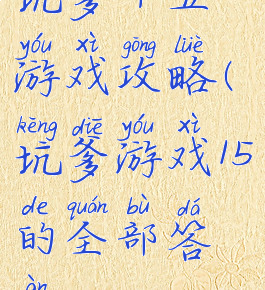 坑爹十五
yóu xì gōng lüè
游戏攻略(
kēng diē yóu xì
坑爹游戏15
de quán bù dá
的全部答
àn